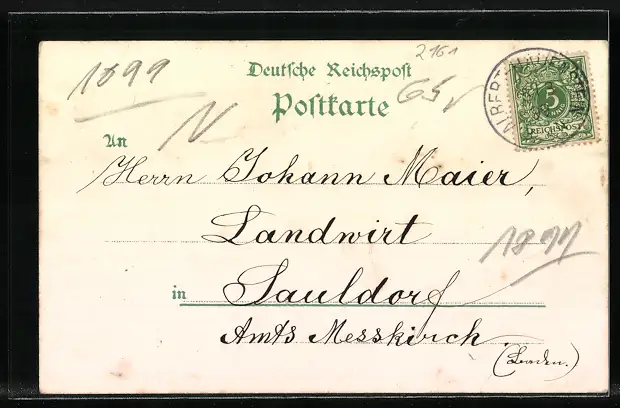 2161
1899
Deutsche Reichspost
Postkarte
65
N
5
REICHSPOST
An
Herrn Johann Maier,
Landwirt
1899
in Sauldorf
Amts Messkirch
(Baden.)